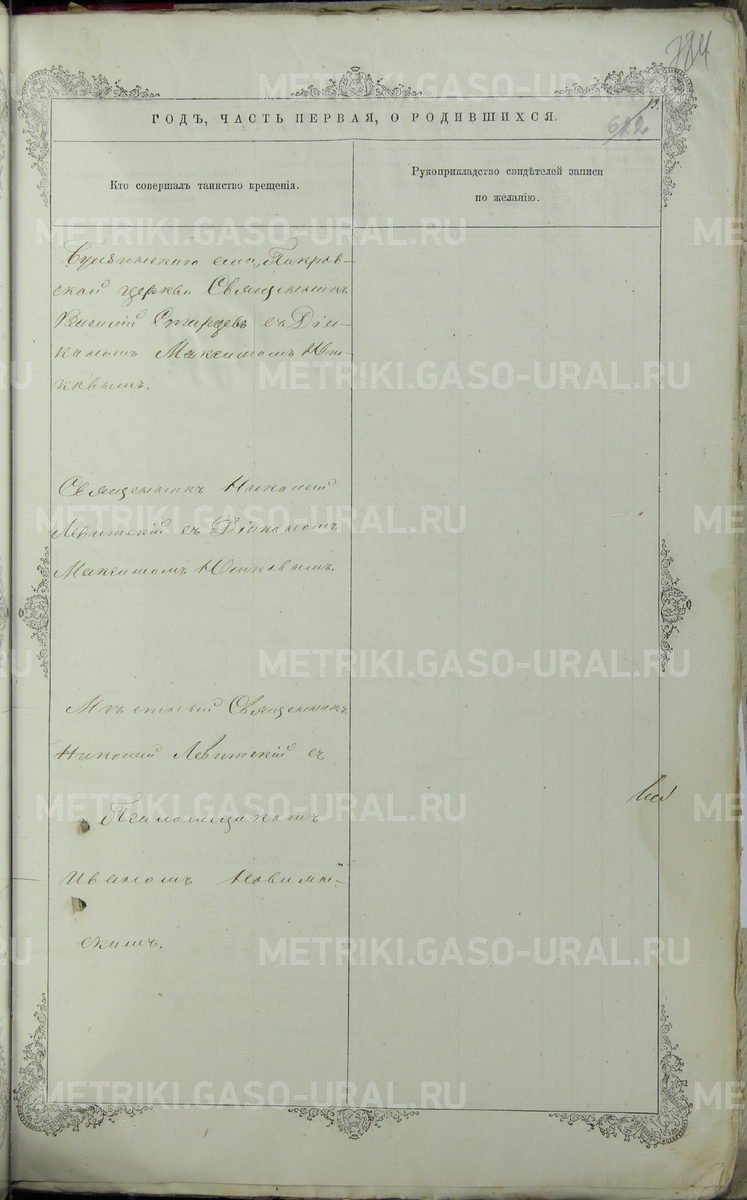 784
13
622
ГОДЪ, ЧАСТЬ ПЕРВАЯ, О РОДИВШИХСЯ.
Кто совершалъ таинство крещенія.
Рукоприкладство свидѣтелей записи
по желанію.
села Покров-
ской церкви Священникъ
Василій Старцевъ съ Діа-
кономъ Максимомъ
ковымъ.
Священникъ Николай
Левитскій съ Діакономъ
Максимомъ Юшковымъ.
Мѣстный Священникъ
Николай Левитскій съ
Псаломщикомъ
Иваномъ
скимъ.
METRIKI.GASO-URAL.RU